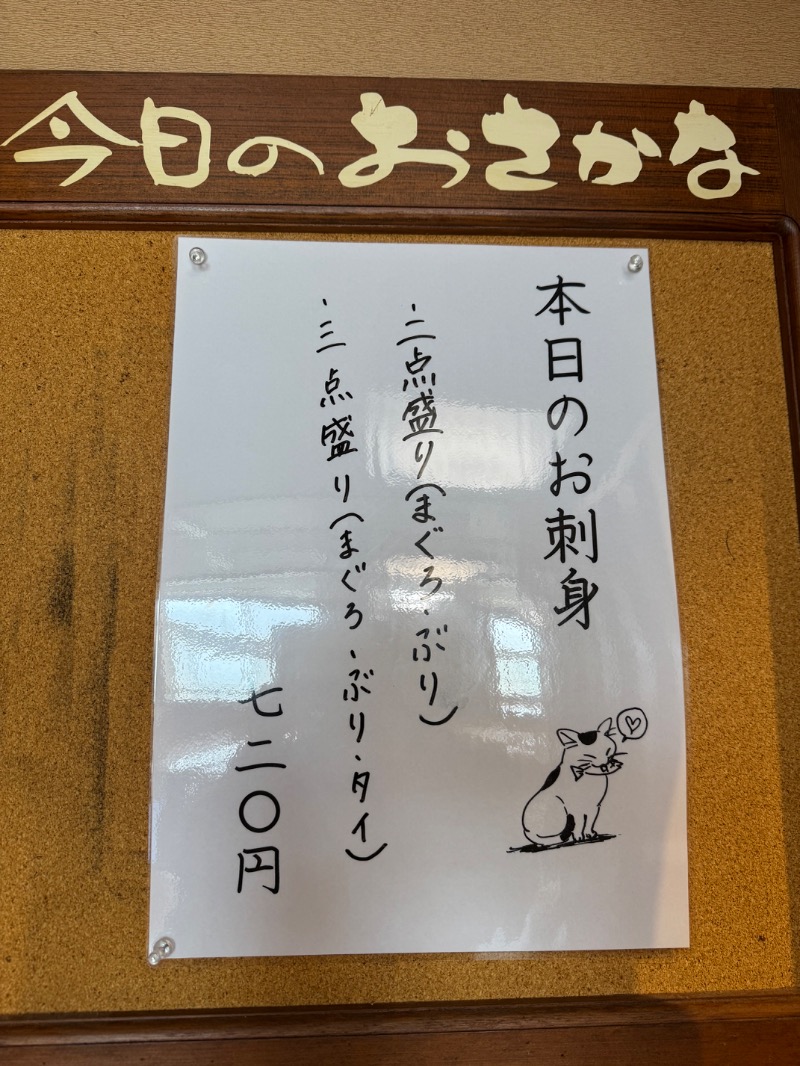 今日のおさかな
本日のお刺身
・二点盛り(まぐろ・ぶり)
・三点盛り(まぐろ・ぶり・タイ)
七二〇円